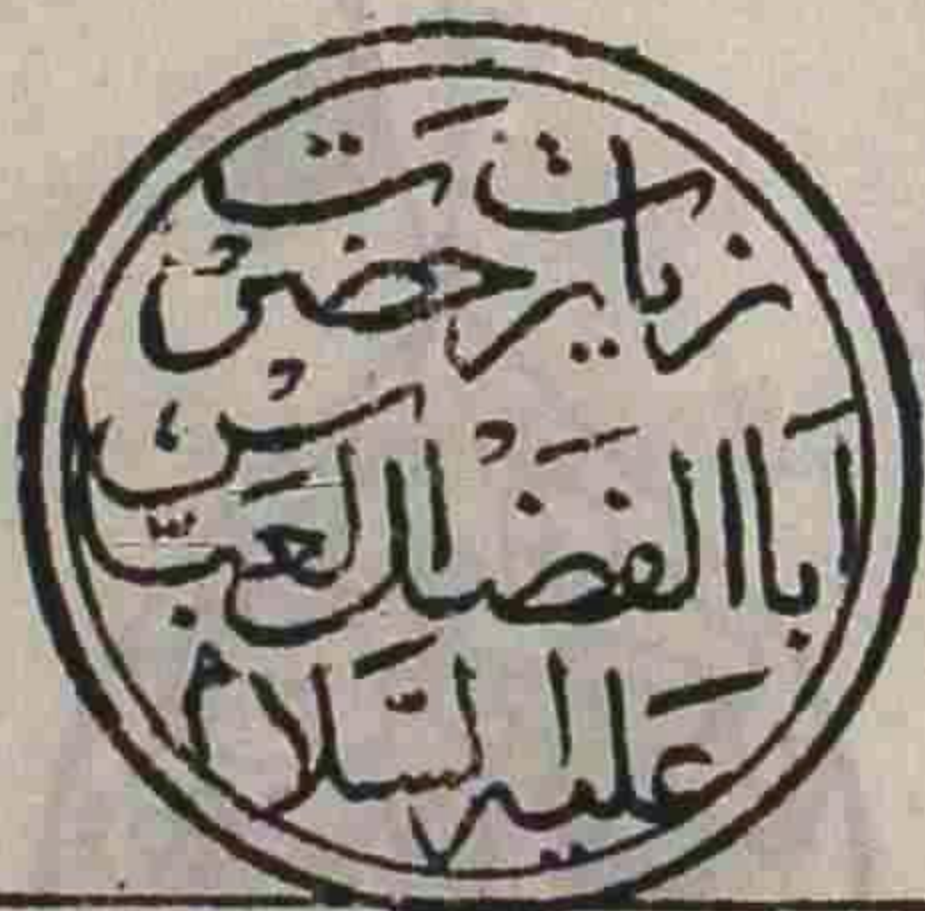 زیارت حضرت
اَبَا الْفَضْلِ الْعَبَّاسُ
عَلَیْهِ السَّلَام